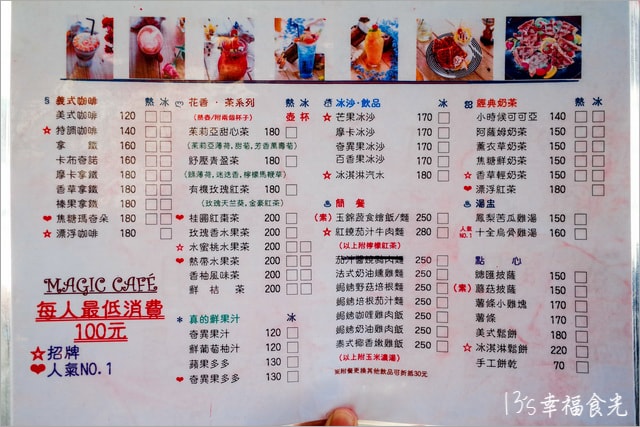 義式咖啡 熱 冰
美式咖啡 120
特調咖啡 140
拿鐵 160
卡布奇諾 160
摩卡拿鐵 180
焦糖拿鐵 180
香草拿鐵 180
榛果拿鐵 180
焦糖瑪奇朵 180
漂浮咖啡 180
MAGIC CAFÉ
每人最低消費
100元
招牌
人氣NO.1
花香·茶系列 熱 冰
(熱壺/附兩個杯子) 壺 杯
茉莉亞甜心茶 180
(茉莉亞薄荷,甜菊,芳香萬壽菊)
舒壓青盈茶 180
(綠薄荷,迷迭香,檸檬馬鞭草)
有機玫瑰紅茶 180
(玫瑰天竺葵,金豪紅茶)
桂圓紅棗茶 200
玫瑰香水果茶 200
水蜜桃水果茶 200
熱帶水果茶 200
香柚風味茶 200
鮮桔茶 200
真的鮮果汁 冰
奇異果汁 120
鮮葡萄柚汁 120
蘋果多多 130
奇異果多多 130
冰沙·飲品 冰
芒果冰沙 170
摩卡冰沙 170
奇異果冰沙 170
百香果冰沙 170
冰淇淋汽水 180
簡餐
(素) 玉錦蔬食燴飯/麵 250
紅燒茄汁牛肉麵 250
(以上附檸檬紅茶)
法式奶油燻雞麵 250
焗烤野菇培根麵 250
焗烤培根茄汁麵 250
焗烤咖哩雞肉飯 250
焗烤奶油燉雞飯 250
泰式椰香嫩雞飯 250
(以上附玉米濃湯)
※附餐更換其他飲品可折抵30元
經典奶茶 熱 冰
小時候可可亞 140
阿薩姆奶茶 150
薰衣草奶茶 150
焦糖鮮奶茶 150
香草輕奶茶 150
漂浮紅茶 150
湯盅
鳳梨苦瓜雞湯 150
人氣NO.1 十全烏骨雞湯 160
點心
總匯披薩 150
(素) 蘑菇披薩 150
薯條小雞塊 150
薯條 100
美式鬆餅 150
冰淇淋鬆餅 220
手工餅乾 70
13's幸福食光